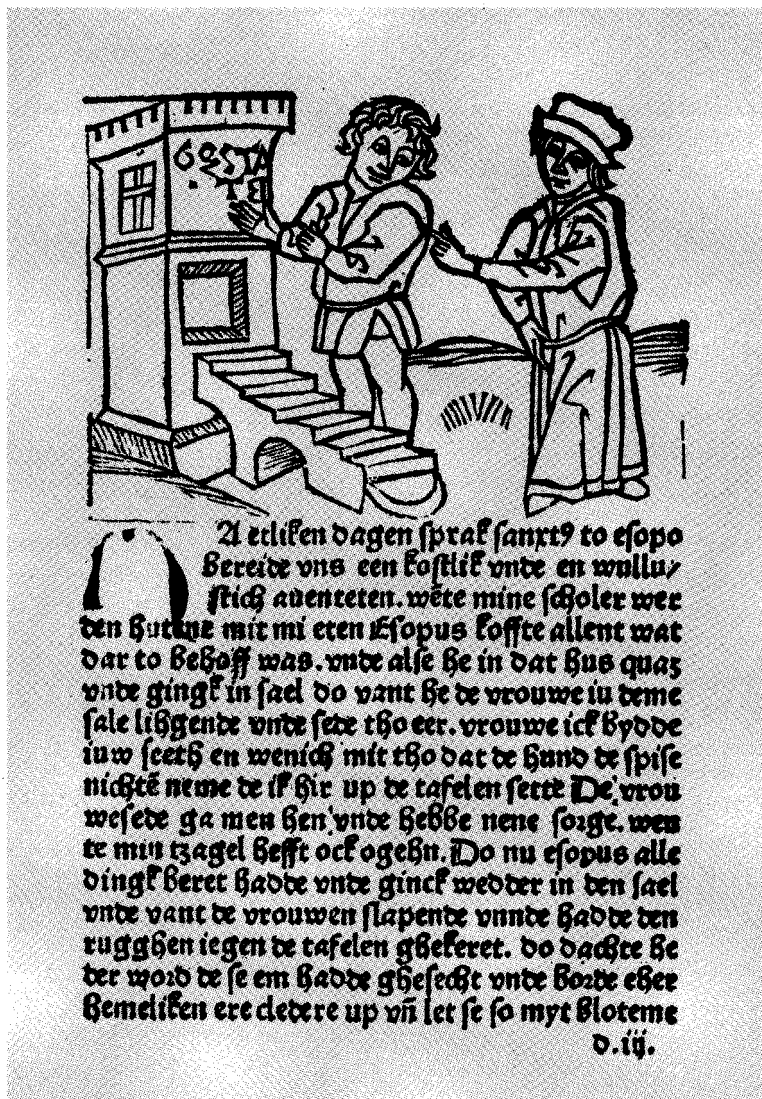 GESTA
TE
A etliken dagen sprak sanxt9 to esopo
Bereide vns een kostlik vnde en wullu/
stich auenteten. wēte mine scholer wer
den hutene mit mi eten Esopus koffte allent wat
dar to behoff was. vnde alse he in dat hus quaz
vnde gingk in sael do vant he de vrouwe iu deme
sale lihgende vnde sede tho eer. vrouwe ick bydde
iuw seeth en wenich mit tho dat de hund de spise
nichtē neme de ik hir up de tafelen sette De vrou
wesede ga men hen vnde hebbe nene sorge. wen
te min tzagel hefft ock ogehn. Do nu esopus alle
dingk beret hadde vnde ginck wedder in den sael
vnde vant de vrouwen slapende vnnde hadde den
rugghen iegen de tafelen ghekeret. do dachte he
der word de se em hadde ghesecht vnde borde eher
hemeliken ere cledere up vn̄ let se so myt bloteme
d.iij.